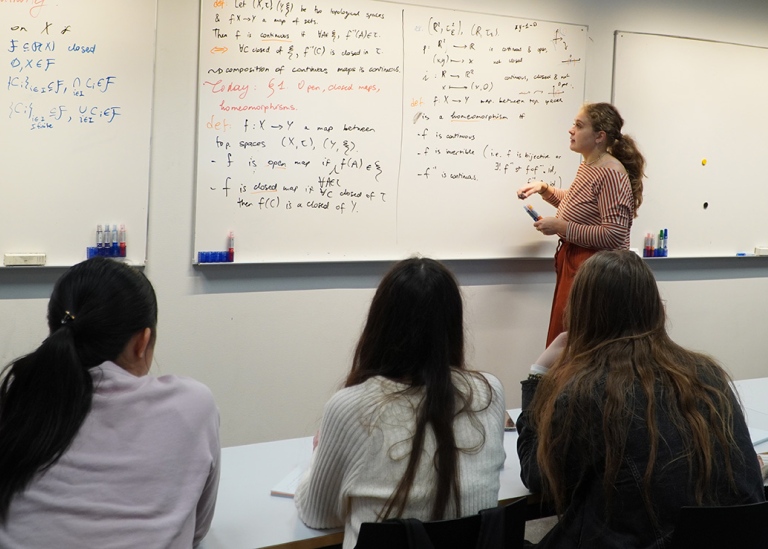 on X if
F ⊆ P(X) closed
∅, X ∈ F
{Ci}i∈I ⊆ F, ∩i∈I Ci ∈ F
{Ci}i∈I ⊆ F, ∪i∈I Ci ∈ F
I finite
def: Let (X,τ) (Y,ξ) be top spaces
& f: X → Y a map of sets.
Then f is continuous if ∀A∈ξ, f⁻¹(A)∈τ.
⇔ ∀C closed of ξ, f⁻¹(C) is closed in τ.
⇝ composition of continuous maps is continuous.
Today: §1 Open, closed maps,
homeomorphisms.
def: f: X → Y a map between
top spaces (X,τ), (Y,ξ).
- f is open map if f(A) ∈ ξ
∀A∈τ
- f is closed map if ∀C closed of τ
then f(C) is a closed of Y.
(R², ), (R, )
p: R² → R is continuous & open,
(x,y) ↦ x not closed
i: R → R² continuous, closed & not
x ↦ (x,0)
def: f: X → Y map between top spaces
is a homeomorphism if
- f is continuous
- f is invertible (i.e. f is bijective or
- f⁻¹ is continuous